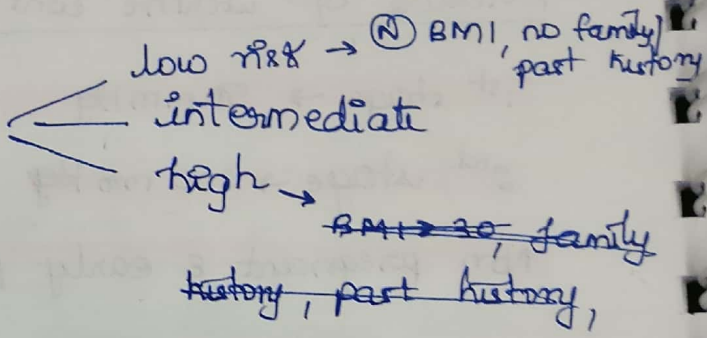 low risk → Ⓝ BMI, no family/
past history
intermediate
high →
BMI > 30, family
history, past history,